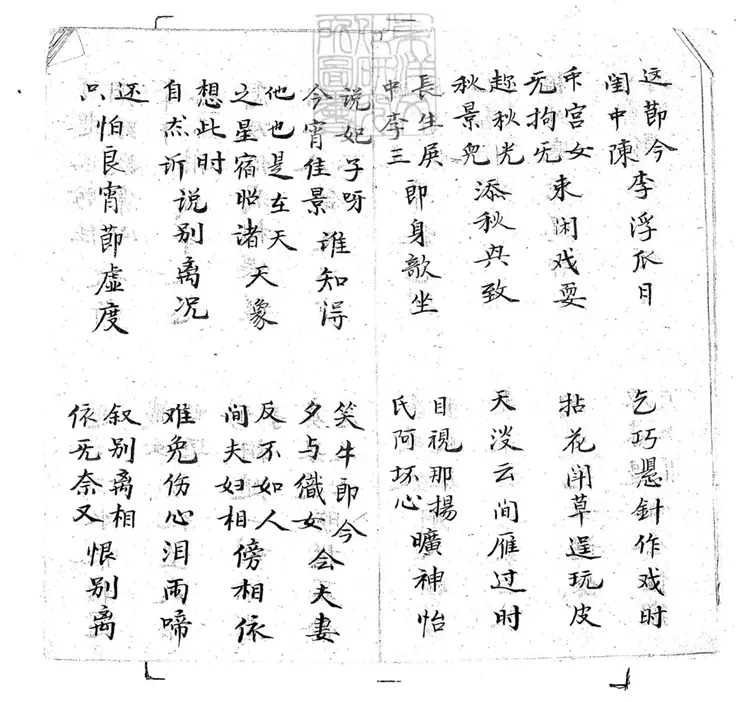 这莭今闺中陳李浮瓜日
乞巧悬針作戏时
币宫女无拘无束闲戏耍
拈花闘草逞玩皮
趂秋光秋景兜添秋兴致
天淡云间雁过时
長生殿中李三即身歌坐
目視那揚氏阿坏心曠神怡
说妃子呀今宵佳景谁知淂
笑牛郎今夕与織女会夫妻
他也是在天之星宿昭诸天象
反不如人间夫妇相傍相依
想此时自杰诉说别离况
难免伤心泪雨啼
还只怕良宵莭虚度
叙别离相依无奈又恨别离